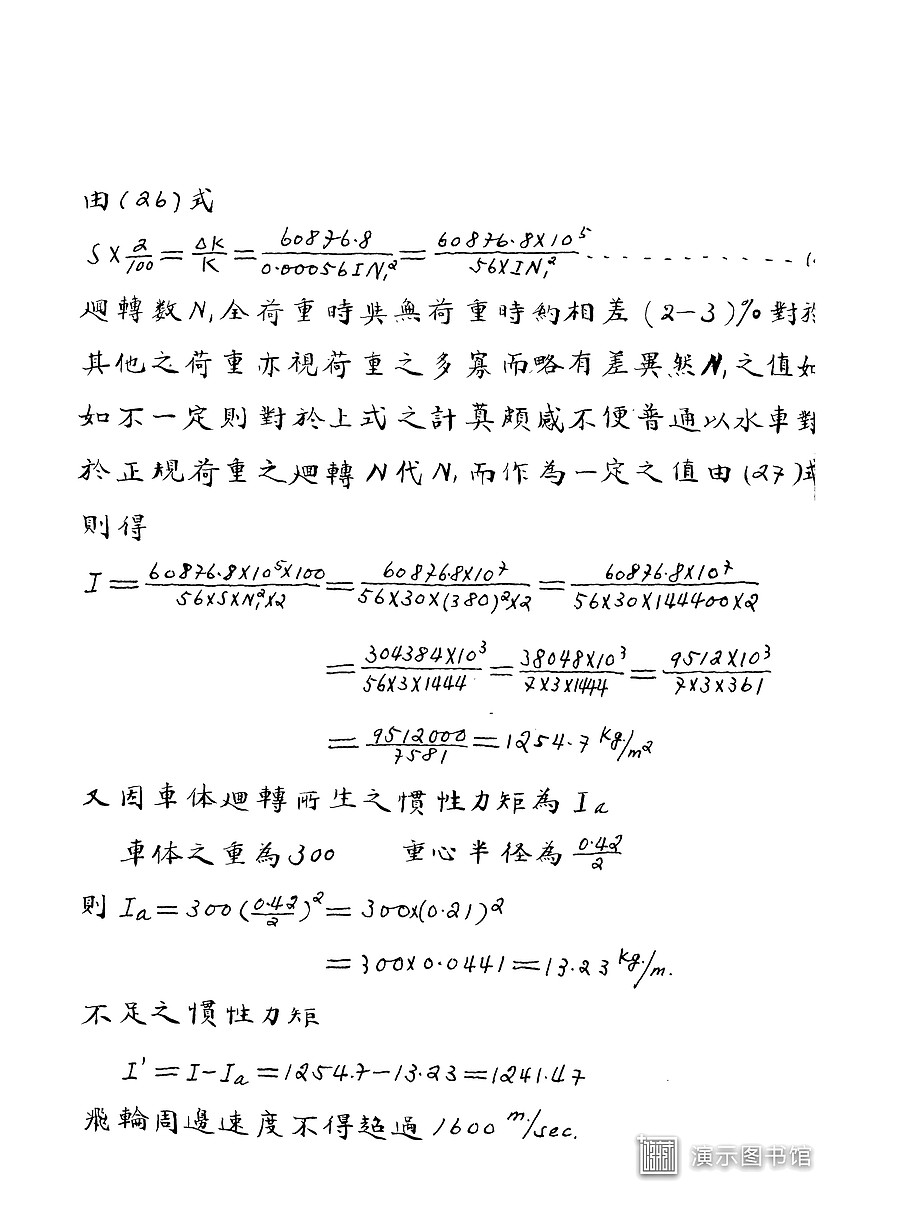 由(26)式
S×2/100=ΔK/K=60876.8/0.00056IN₁²=60876.8×10⁵/56×IN₁²------------(
廻轉数N₁全荷重時與無荷重時約相差(2-3)%對於
其他之荷重亦視荷重之多寡而略有差異然N₁之值如
如不一定則對於上式之計算頗感不便普通以水車對
於正規荷重之廻轉N代N₁而作為一定之值由(27)式
則得
I=60876.8×10⁵×100/56×S×N₁²×2=60876.8×10⁷/56×30×(380)²×2=60876.8×10⁷/56×30×144400×2
=304384×10³/56×3×1444=38048×10³/7×3×1444=9512×10³/7×3×361
=9512000/7581=1254.7 kg/m²
又因車体廻轉所生之慣性力矩為Ia
車体之重為300 重心半径為0.42/2
則Ia=300(0.42/2)²=300×(0.21)²
=300×0.0441=13.23 kg/m.
不足之慣性力矩
I'=I-Ia=1254.7-13.23=1241.47
飛輪周邊速度不得超過1600 m/sec.
演示图书馆